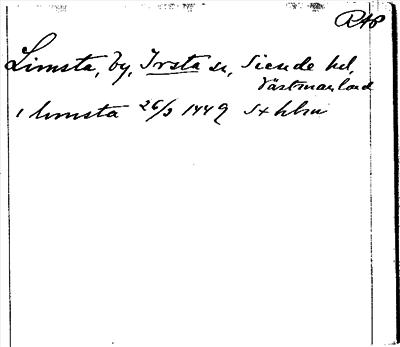 RAP
Limsta, by, Irsta sn, Siende hd,
Västmanland
i limsta 26/3 1449